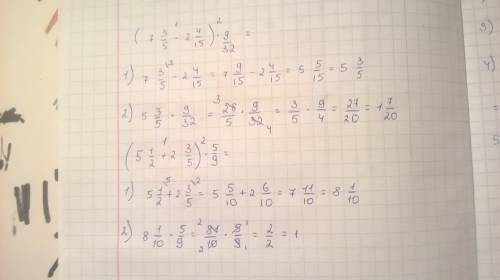 (7 3/5 - 2 4/15) · 9/32 =
1) 7 3/5 - 2 4/15 = 7 9/15 - 2 4/15 = 5 5/15 = 5 3/5
2) 5 3/5 · 9/32 = 28/5 · 9/32 = 3/5 · 9/4 = 27/20 = 1 7/20
(5 1/2 + 2 3/5) · 5/9 =
1) 5 1/2 + 2 3/5 = 5 5/10 + 2 6/10 = 7 11/10 = 8 1/10
2) 8 1/10 · 5/9 = 81/10 · 5/9 = 2/2 = 1
3)
4)